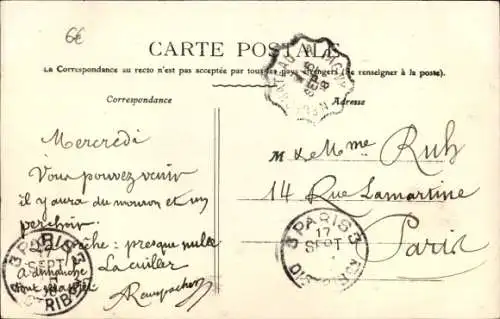 6€
CARTE POSTALE
La Correspondance au recto n'est pas acceptée par tous les pays étrangers (Se renseigner à la poste).
Correspondance
Adresse
Mercredi
Vous pouvez venir
il y aura du mouron et un
perchoir.
Pêche : presque nulle
La cuiller
à dimanche
M & Mme Ruh
14 Rue Lamartine
Paris
PARIS
SEPT
DISTRIB
3 PARIS 3
17
SEPT
DISTRIB